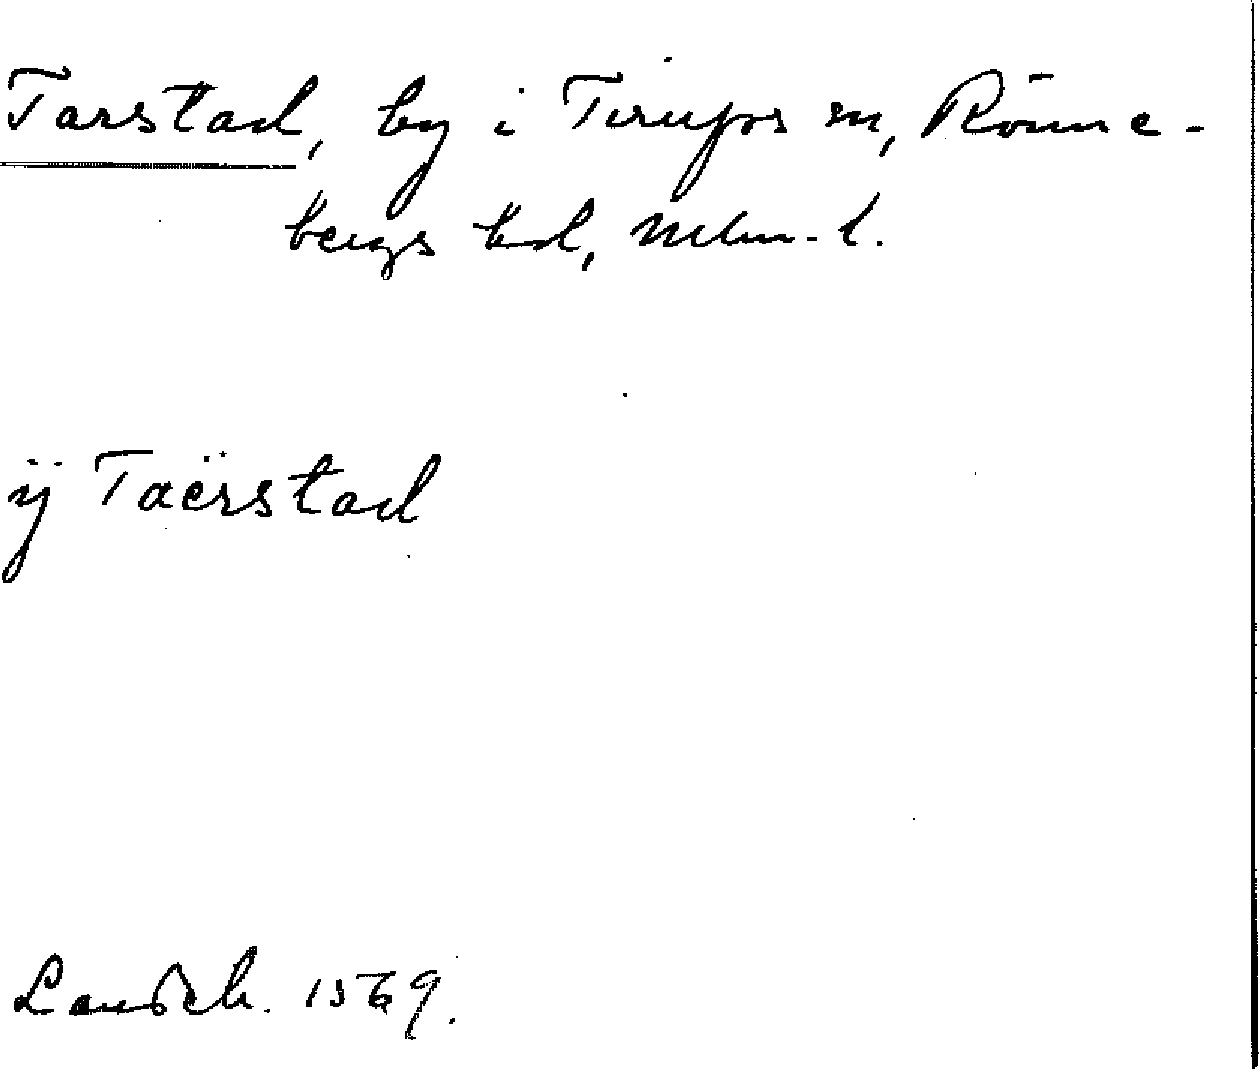 Tarstad, by i Tirups sn, Rönne-
bergs hd, Mlm. l.
ÿ Taërstad
Landeb. 1569.